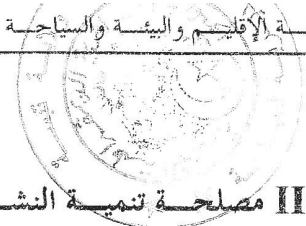 ـة الإقليـم والبيئـة والسياحـة
II مصلحـة تنميـة النشـ